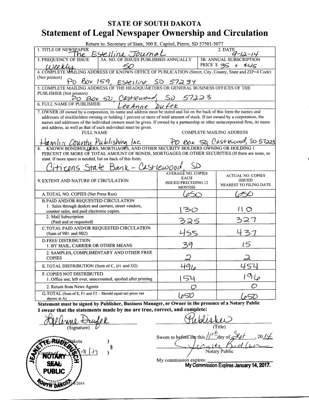 STATE OF SOUTH DAKOTA
Statement of Legal Newspaper Ownership and Circulation
Return to: Secretary of State, 500 E. Capitol, Pierre, SD 57501-5077
1. TITLE OF NEWSPAPER The Estelline Journal 2. DATE 9-12-14
3. FREQUENCY OF ISSUE Weekly 3A. NO. OF ISSUES PUBLISHED ANNUALLY 50 3B. ANNUAL SUBSCRIPTION PRICE $ 35 + $45
4. COMPLETE MAILING ADDRESS OF KNOWN OFFICE OF PUBLICATION (Street, City, County, State and ZIP+4 Code)
(Not printers)
PO Box 159, Estelline SD 57234
5. COMPLETE MAILING ADDRESS OF THE HEADQUARTERS OR GENERAL BUSINESS OFFICES OF THE
PUBLISHER (Not printers)
PO Box 50 Castlewood, SD 57223
6. FULL NAME OF PUBLISHER: LeeAnne Dufek
7. OWNER (If owned by a corporation, its name and address must be stated and list on the back of this form the names and
addresses of stockholders owning or holding 1 percent or more of total amount of stock. If not owned by a corporation, the
names and addresses of the individual owners must be given. If owned by a partnership or other unincorporated firm, its name
and address, as well as that of each individual must be given.
FULL NAME COMPLETE MAILING ADDRESS
Hamlin County Publishing Inc. PO Box 50, Castlewood, SD 57223
8. KNOWN BONDHOLDERS, MORTGAGES, AND OTHER SECURITY HOLDERS OWNING OR HOLDING 1
PERCENT OR MORE OF TOTAL AMOUNT OF BONDS, MORTGAGES OR OTHER SECURITIES (If there are none, so
state. If more space is needed, list on back of this form)
Citizens State Bank - Castlewood SD
9. EXTENT AND NATURE OF CIRCULATION
AVERAGE NO. COPIES EACH ISSUED PRECEDING 12 MONTHS
ACTUAL NO. COPIES ISSUED NEAREST TO FILING DATE
A. TOTAL NO. COPIES (Net Press Run) 650 650
B. PAID AND/OR REQUESTED CIRCULATION
1. Sales through dealers and carriers, street vendors,
counter sales, and paid electronic copies. 130 110
2. Mail Subscription
(Paid and or requested) 325 327
C. TOTAL PAID AND/OR REQUESTED CIRCULATION
(Sum of 9B1 and 9B2) 455 437
D. FREE DISTRIBUTION
1. BY MAIL, CARRIER OR OTHER MEANS 39 15
2. SAMPLES, COMPLIMENTARY AND OTHER FREE
COPIES 2 2
E. TOTAL DISTRIBUTION (Sum of C, D1 and D2) 496 454
F. COPIES NOT DISTRIBUTED
1. Office use, left over, unaccounted, spoiled after printing 154 196
2. Return from News Agents 0 0
G. TOTAL (Sum of E, F1 and F2 - Should equal net press run
shown in A) 650 650
Statement must be signed by Publisher, Business Manager, or Owner in the presence of a Notary Public
I swear that the statements made by me are true, correct, and complete:
LeeAnne Dufek Publisher
(Signature) (Title)
Sworn to before me this 11th day of Sept, 2014
Notary Public
My commission expires: My Commission Expires January 14, 2017.
NOTARY
SEAL
PUBLIC
SOUTH DAKOTA